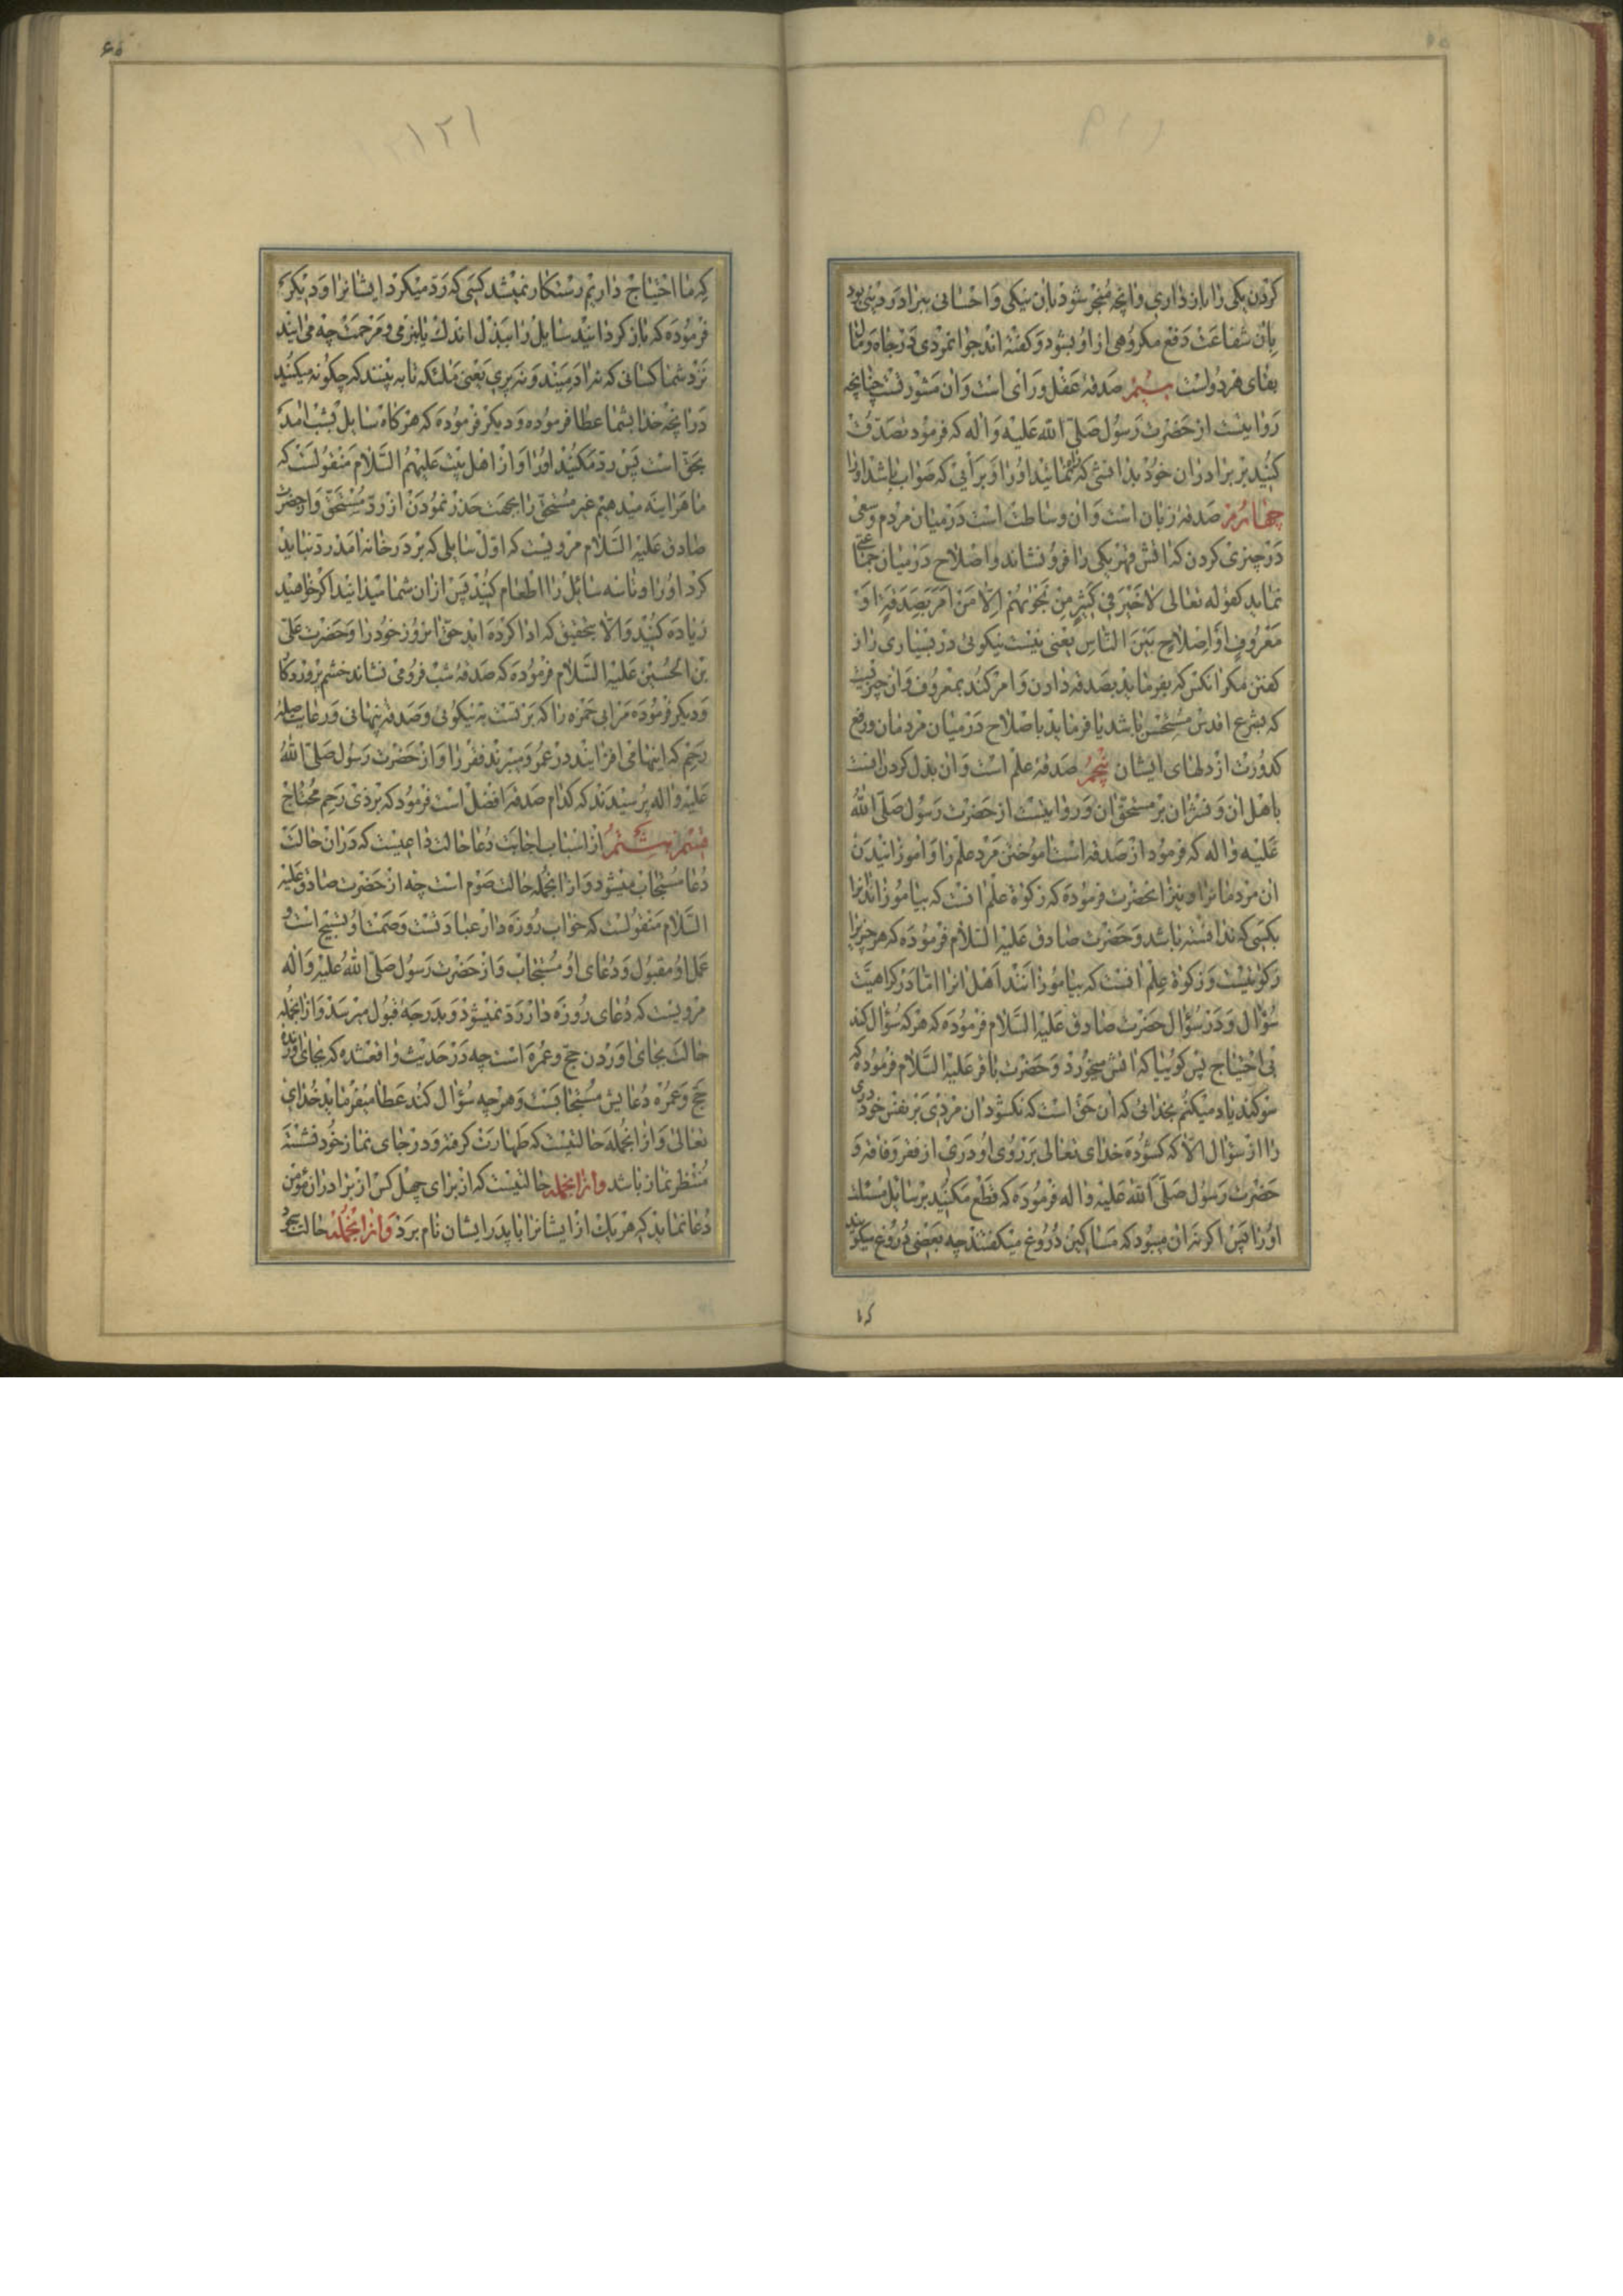 کردن یکی را باز داری و آنچه منجر شود بآن نیکی و احسانی ببرادر دینی بود
بآن شفاعت دفع مکروهی از او بشود و گفته اند جوانمردی در جاه و مال
بقای هر دولست سیم صدقهٔ عقل و رای است و آن مشورتست چنانچه
روایتست از حضرت رسول صلی الله علیه و اله که فرمود تصدّق
کنید بر برادران خود بدانشی که راه نمائید او را و برأیی که صواب باشد او را
چهارم صدقهٔ زبان است و آن وساطت است در میان مردم و سعی
در چیزی کردن که آتش قهر یکی را فرو نشاند و اصلاح در میان جماعتی
نماید کقوله تعالی لا خیر فی کثیر من نجویهم الّا من امر بصدقة او
معروف او اصلاح بین الناس یعنی نیست نیکوئی در بسیاری راز
گفتن مگر آنکس که بفرماید بصدقه دادن و امر کند بمعروف و آن چیزیست
که بشرع اقدس مستحسن باشد یا فرماید باصلاح در میان مردمان و رفع
کدورت از دلهای ایشان پنجم صدقهٔ علم است و آن بذل کردن آنست
باهل آن و نشر آن بر مستحقّان و روایتست از حضرت رسول صلی الله
علیه و اله که فرمود از صدقه است آموختن مرد علم را و آموزانیدن
آن مردمانرا و نیز آنحضرت فرموده که زکوة علم آنست که بیاموزاند آنرا
بکسی که ندانسته باشد و حضرت صادق علیه السلام فرموده که هر چیزیرا
زکوتیست و زکوة علم آنست که بیاموزانند اهل آنرا امّا در کراهیّت
سؤال و ردّ سؤال حضرت صادق علیه السلام فرموده که هر که سؤال کند
بی احتیاج پس گوییا که آتش میخورد و حضرت باقر علیه السلام فرموده که
سوگند یاد میکنم بخدائی که آن حق است که نگشود آن مردی بر نفس خود دری
را از سؤال الّا که گشوده خدای تعالی بر روی او دری از فقر و فاقه و
حضرت رسول صلی الله علیه و اله فرموده که قطع مکنید بر سایل مسئلت
او را پس اگر نه آن میبود که مساکین دروغ میگفتند چه بعضی دروغ میگویند
که ما احتیاج داریم رستگار نمیشد کسی که ردّ میکرد ایشانرا و دیگر
فرموده که باز گردانید سایل را ببذل اندک یا بنرمی و مرحمت چه می آیند
نزد شما کسانی که نه آدمیند و نه پری یعنی ملئکه تا به بینند که چگونه میکنید
در آنچه خدا بشما عطا فرموده و دیگر فرموده که هر گاه سایل بشب آمد
بحقّ است پس ردّ مکنید او را و از اهل بیت علیهم السلام منقولست که
ما هر آینه میدهیم غیر مستحق را بجهت حذر نمودن از ردّ مستحق و از حضرت
صادق علیه السلام مرویست که اوّل سایلی که بر در خانه آمد ردّ نباید
کرد او را و تا سه سایل را اطعام کنید پس از آن شما میدانید اگر خواهید
زیاده کنید و الّا بتحقیق که ادا کرده اید حق آنروز خود را و حضرت علی
بن الحسین علیه السلام فرموده که صدقهٔ شب فرو می نشاند خشم پروردگار
و دیگر فرموده مر ابی حمزه را که بر تست به نیکوئی و صدقهٔ پنهانی و رعایت صلهٔ
رحم که اینها می افزایند در عمر و میبرند فقر را و از حضرت رسول صلی الله
علیه و اله پرسیدند که کدام صدقه افضل است فرمود که بر ذی رحم محتاج
قسم ششم از اسباب اجابت دعا حالت داعیست که در آن حالت
دعا مستجاب میشود و از آنجمله حالت صوم است چه از حضرت صادق علیه
السلام منقولست که خواب روزه دار عبادتست و صمت او تسبیح است و
عمل او مقبول و دعای او مستجاب و از حضرت رسول صلی الله علیه و اله
مرویست که دعای روزه دار ردّ نمیشود و بدرجهٔ قبول میرسد و از آنجمله
حالت بجای آوردن حج و عمره است چه در حدیث واقعشده که بجای آورنده
حج و عمره دعایش مستجابست و هر چه سؤال کند عطا میفرماید خدای
تعالی و از آنجمله حالتیست که طهارت گرفته و در جای نماز خود نشسته
منتظر نماز باشد و از آنجمله حالتیست که از برای چهل کس از برادران مؤمن
دعا نماید که هر یک از ایشانرا با پدر ایشان نام برد و از آنجمله حالت